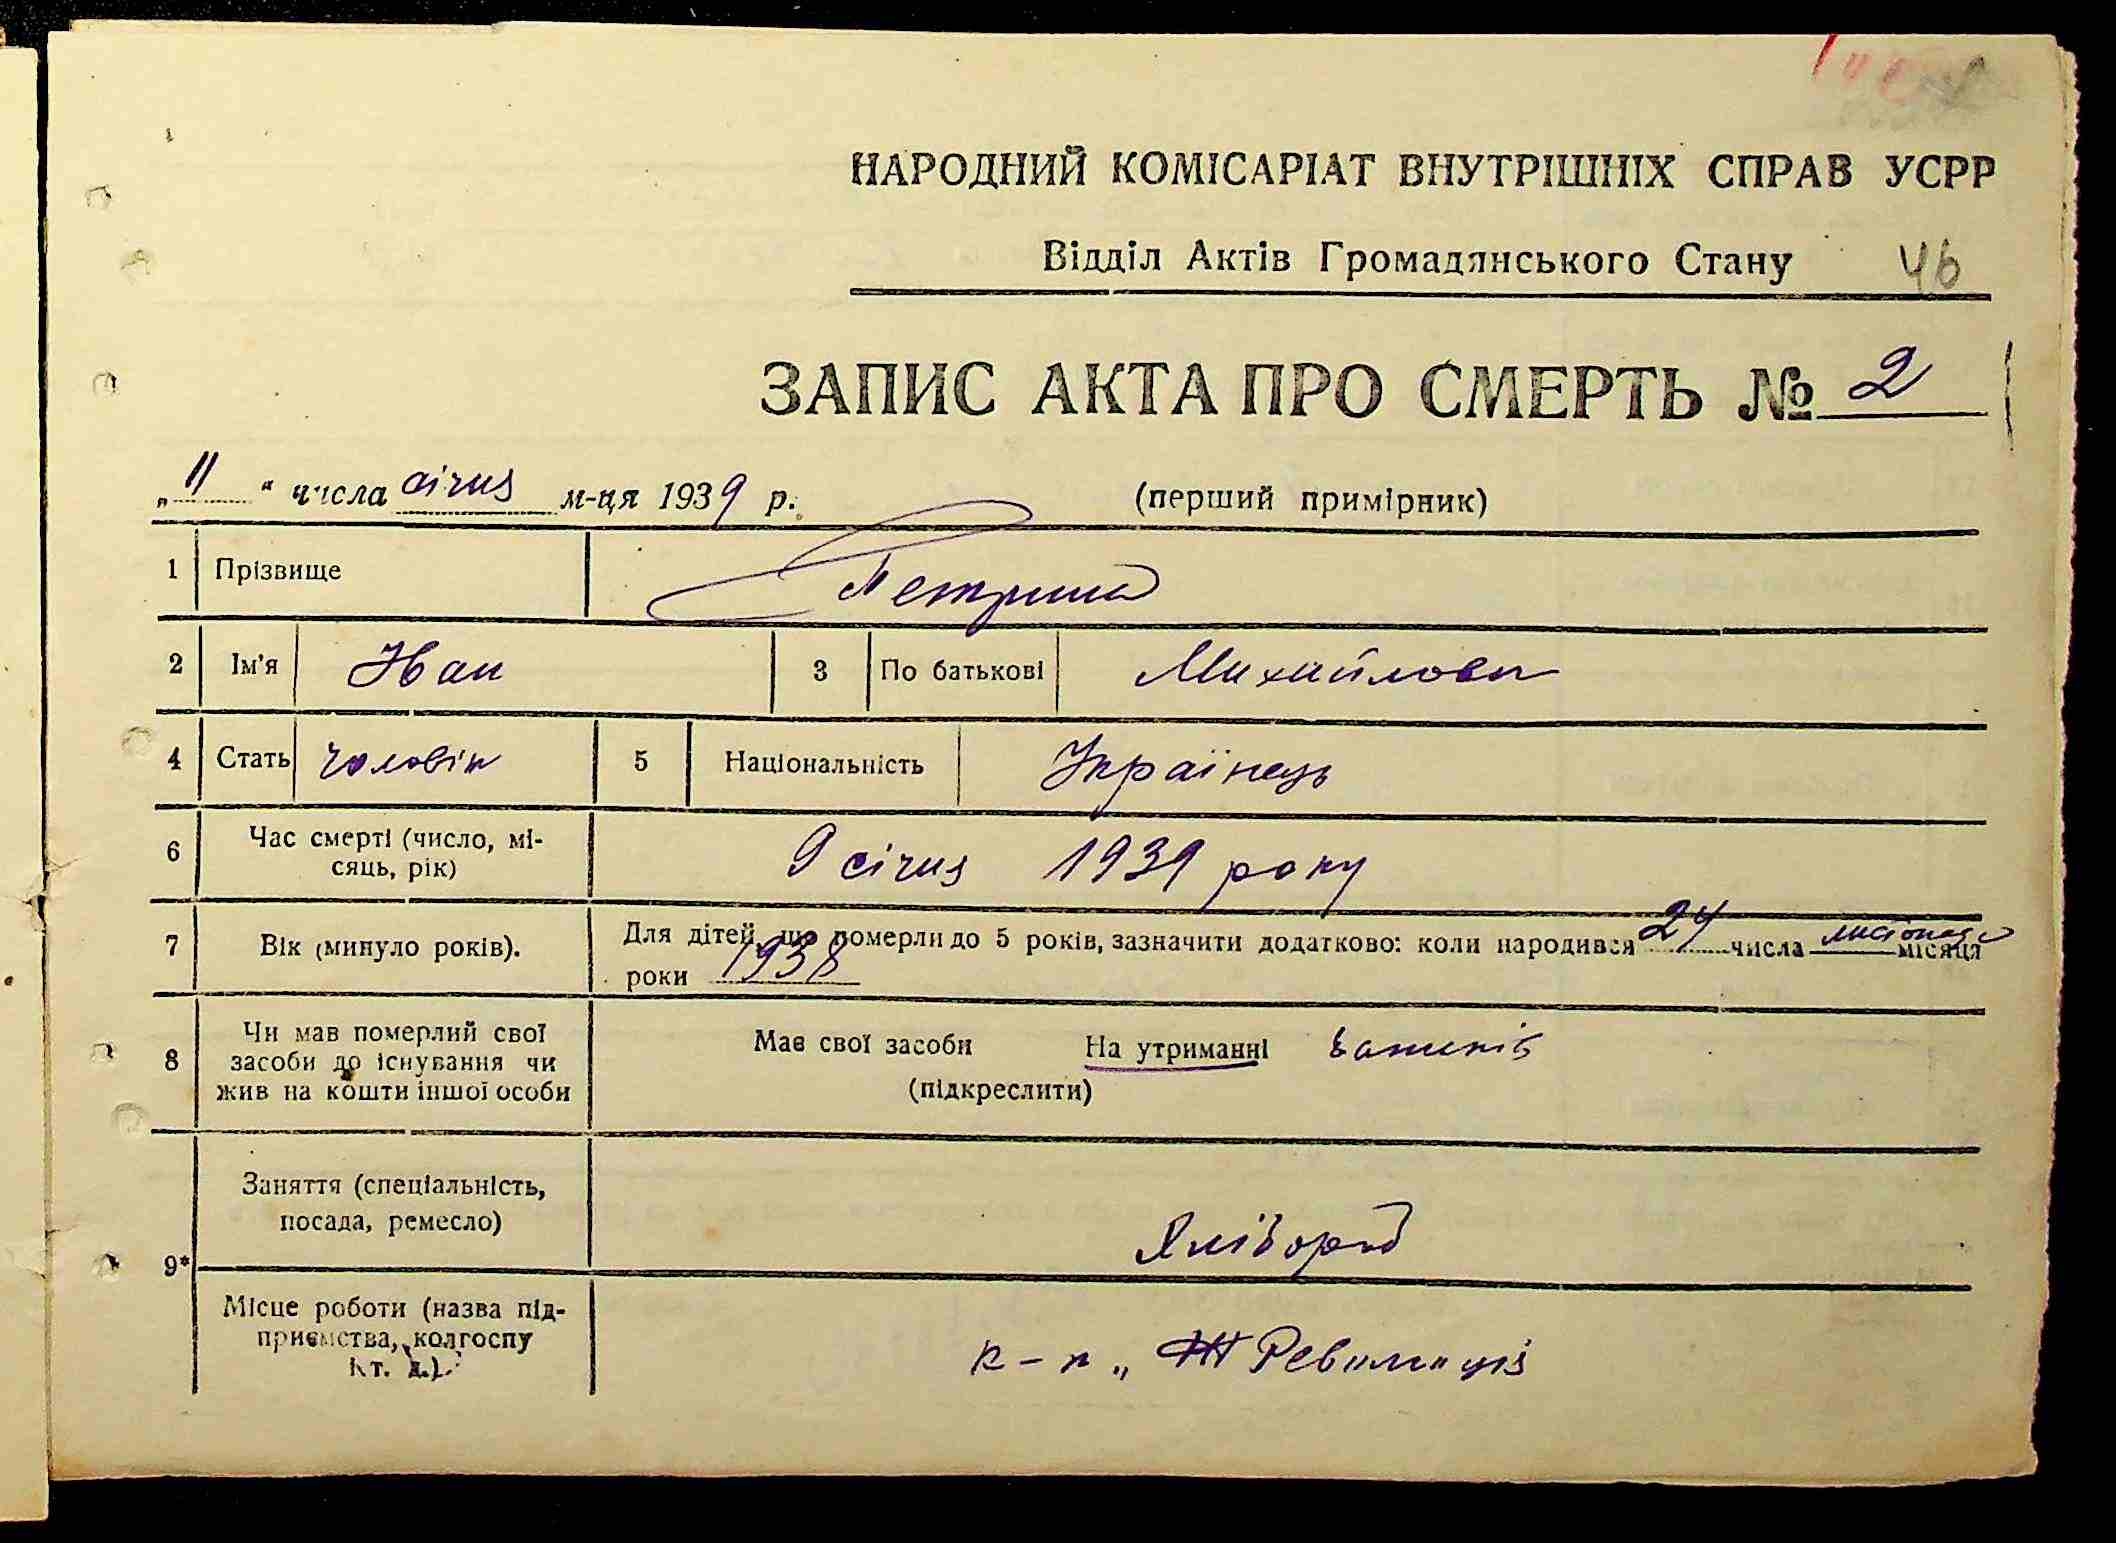 46
НАРОДНИЙ КОМІСАРІАТ ВНУТРІШНІХ СПРАВ УСРР
Відділ Актів Громадянського Стану
ЗАПИС АКТА ПРО СМЕРТЬ № 2
„ 11 “ числа січня м-ця 1939 р.
(перший примірник)
1 Прізвище
2 Ім'я Іван 3 По батькові Михайлович
4 Стать чоловік 5 Національність Українець
6 Час смерті (число, мі-
сяць, рік) 9 січня 1939 року
7 Вік (минуло років). Для дітей, що померли до 5 років, зазначити додатково: коли народився 24 числа листопада місяця
роки 1938
8 Чи мав померлий свої
засоби до існування чи
жив на кошти іншої особи
Має свої засоби На утриманні батьків
(підкреслити)
9* Заняття (спеціальність,
посада, ремесло) Хлібороб
Місце роботи (назва під-
приємства, колгоспу
і т. д.). к-п „ Революція